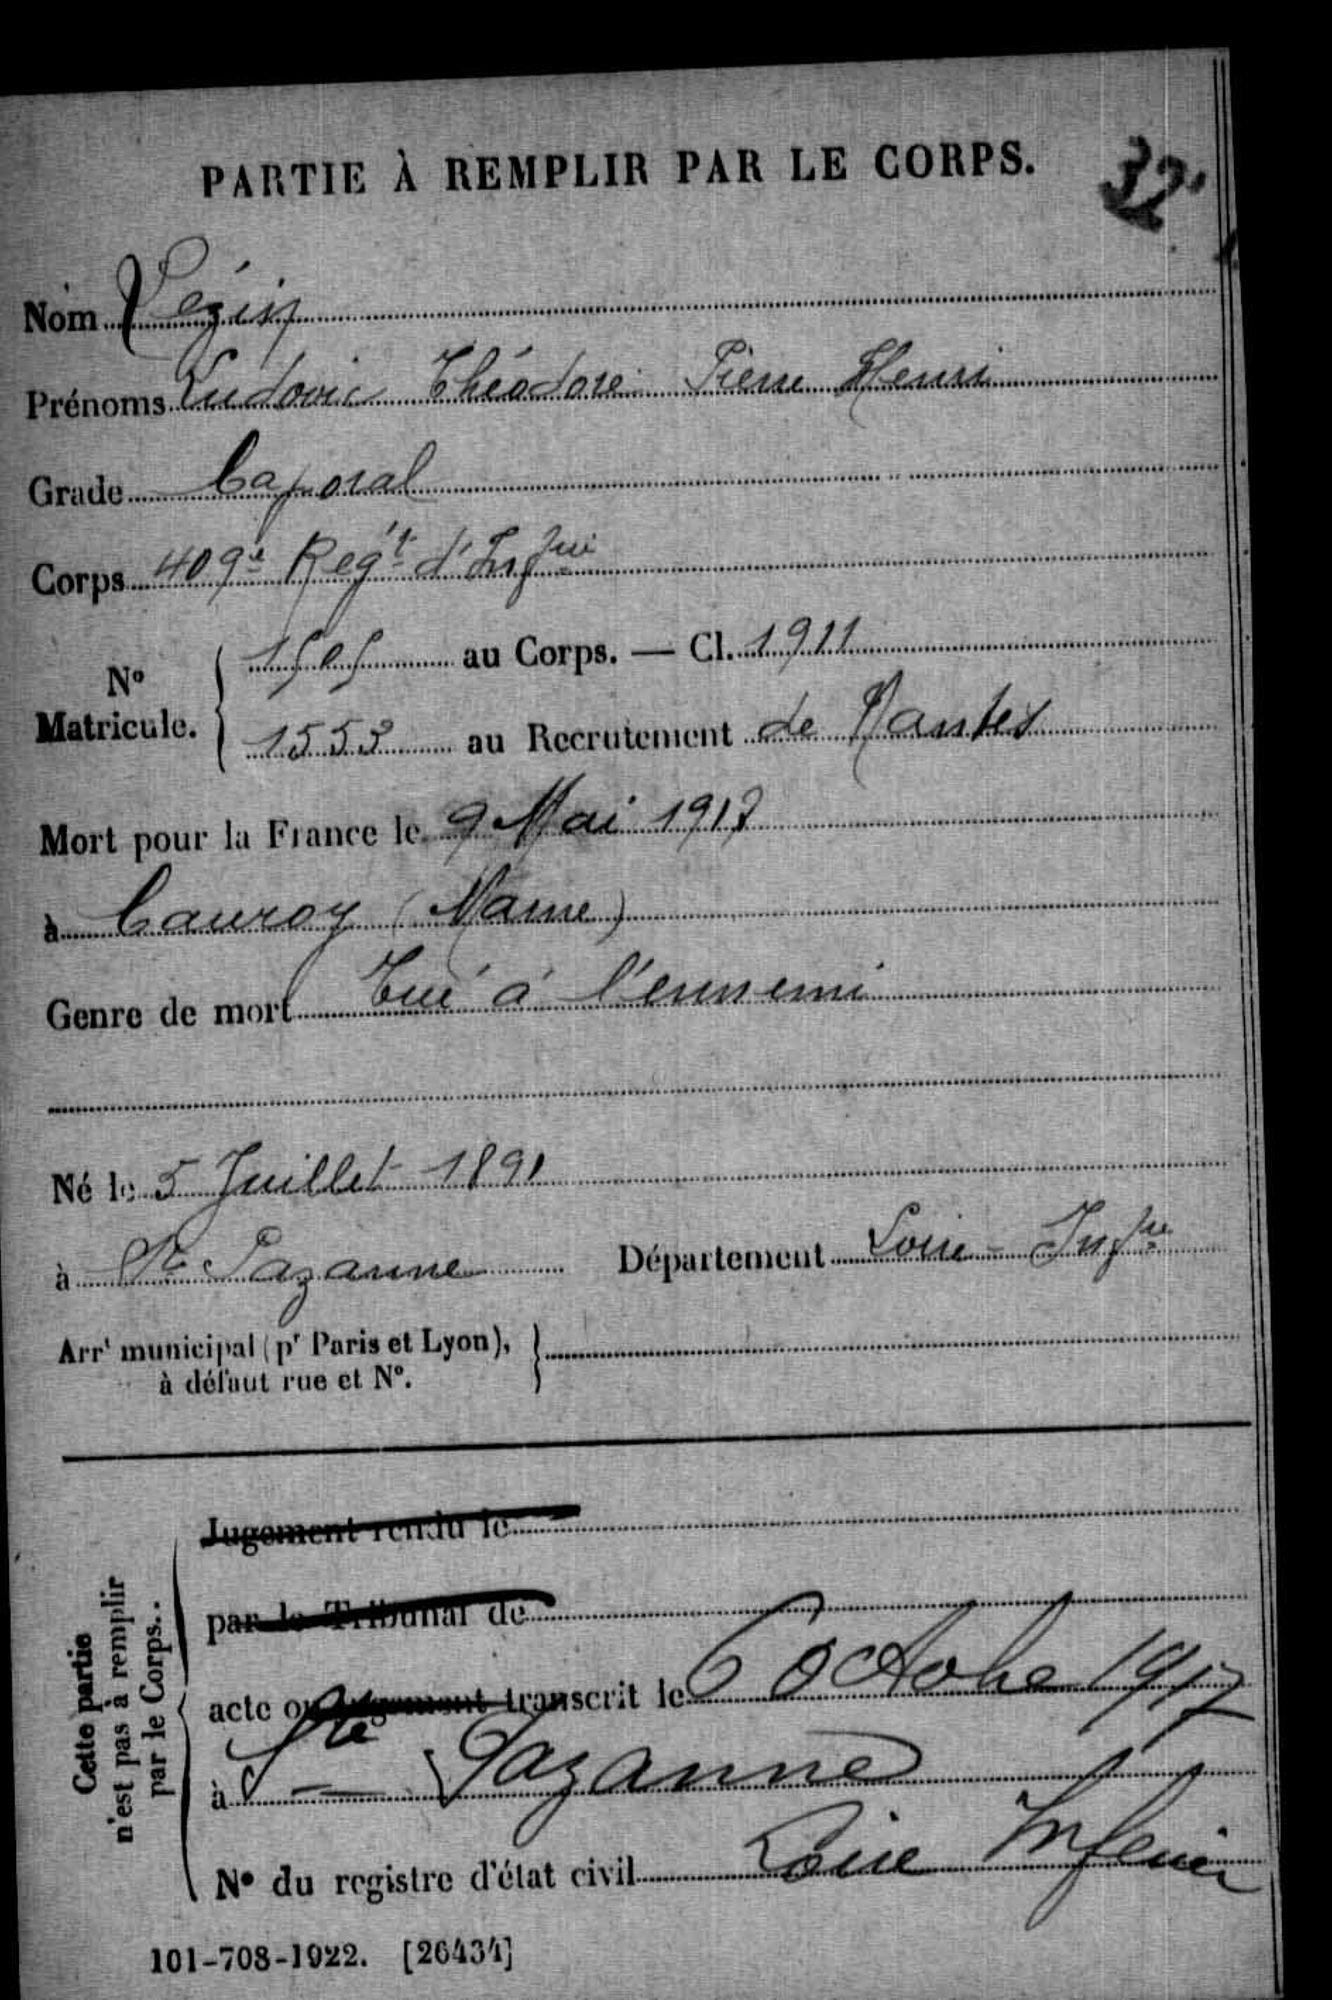 PARTIE À REMPLIR PAR LE CORPS.
32
Nom Vézin
Prénoms Ludovic Théodore Pierre Henri
Grade Caporal
Corps 409e Regt d'Infrie
No Matricule. 1505 au Corps. — Cl. 1911
1553 au Recrutement de Nantes
Mort pour la France le 9 Mai 1917
à Cauroy (Marne)
Genre de mort Tué à l'ennemi
Né le 5 Juillet 1891
à Ste Pazanne Département Loire-Infre
Arrt municipal (pr Paris et Lyon),
à défaut rue et No.
Cette partie
n'est pas à remplir
par le Corps.
Jugement rendu le
par le Tribunal de
acte ou jugement transcrit le 6 Octobre 1917
à Ste Pazanne
No du registre d'état civil Loire Inferieu
101-708-1922. [26434]